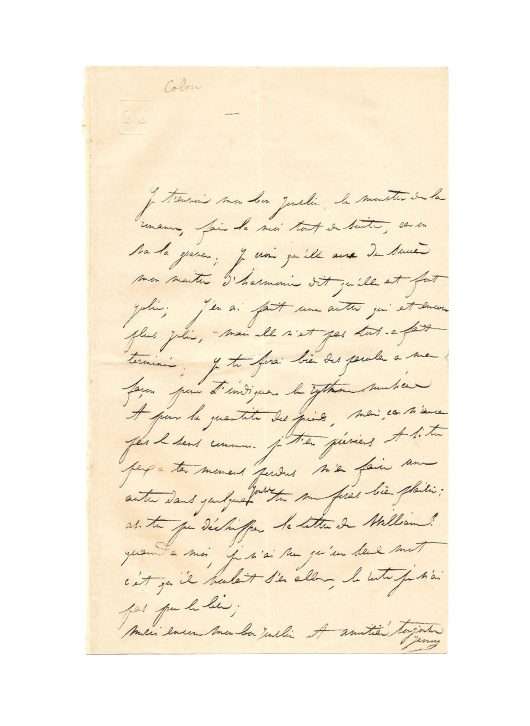 Colon
Je t'envoie mon bon Jules le monstre de la
romance, fais la moi tout de suite, car on
va la graver; je crois qu'elle aura du succès
mon maitre d'harmonie dit qu'elle est fort
jolie; j'en ai fait une autre qui est encore
plus jolie, mais elle n'est pas tout a fait
terminée; je te ferai bien des paroles a ma
façon pour t'indiquer le rythme
et pour la quantité des pieds, mais ça n'aura
pas le sens commun. je t'en préviens et si tu
peux a tes moments perdus m'en faire une
autre dans quelques jours tu me feras bien plaisir;
as tu pu déchiffrer la lettre de William?
quant a moi, je n'ai vu qu'un seul mot
c'est qu'il voulait s'en aller, le reste je n'ai
pas pu le lire;
merci encore mon bon Jules et amitié toujours
Jenny